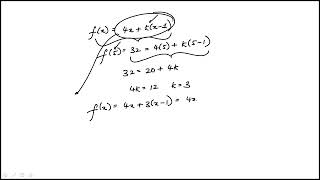 f(x) = 4x + k(x-1)
f(5) = 32 = 4(5) + k(5-1)
32 = 20 + 4k
4k = 12 k = 3
f(x) = 4x + 3(x-1) = 4x